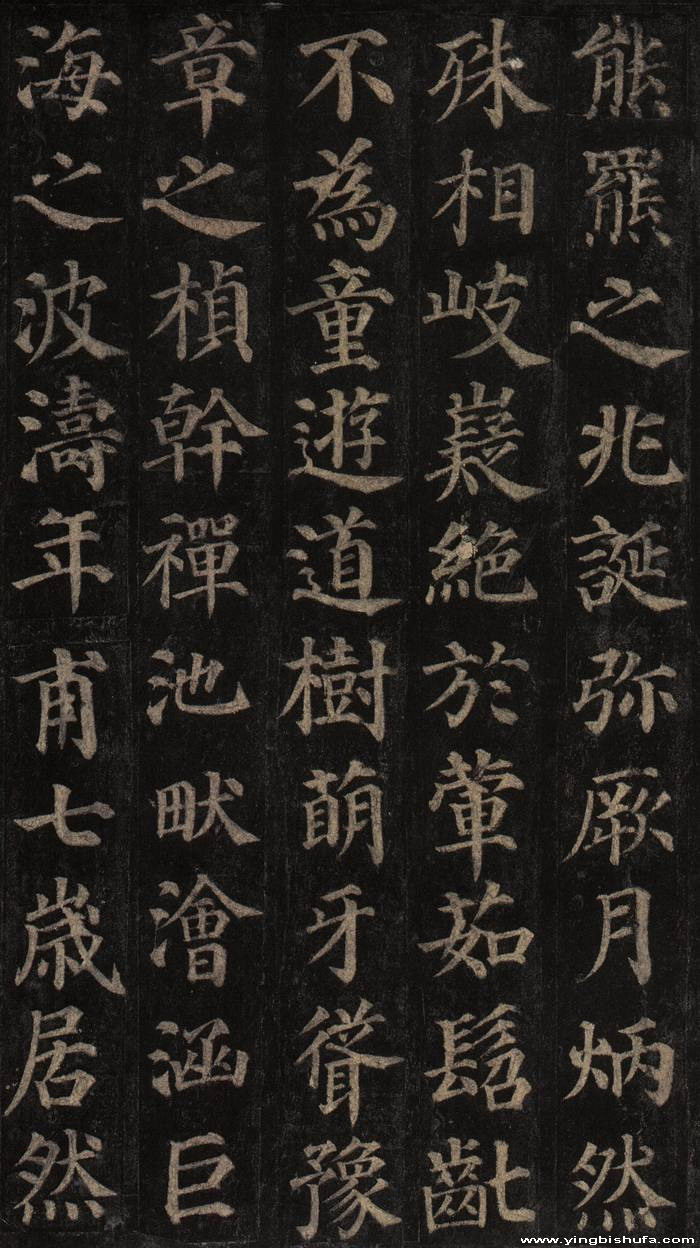 熊羆之兆誕弥厥月炳然
殊相岐嶷絶於葷茹髫齔
不為童遊道樹萌牙聳豫
章之楨幹禪池畎澮涵巨
海之波濤年甫七歳居然
www.yingbishufa.com